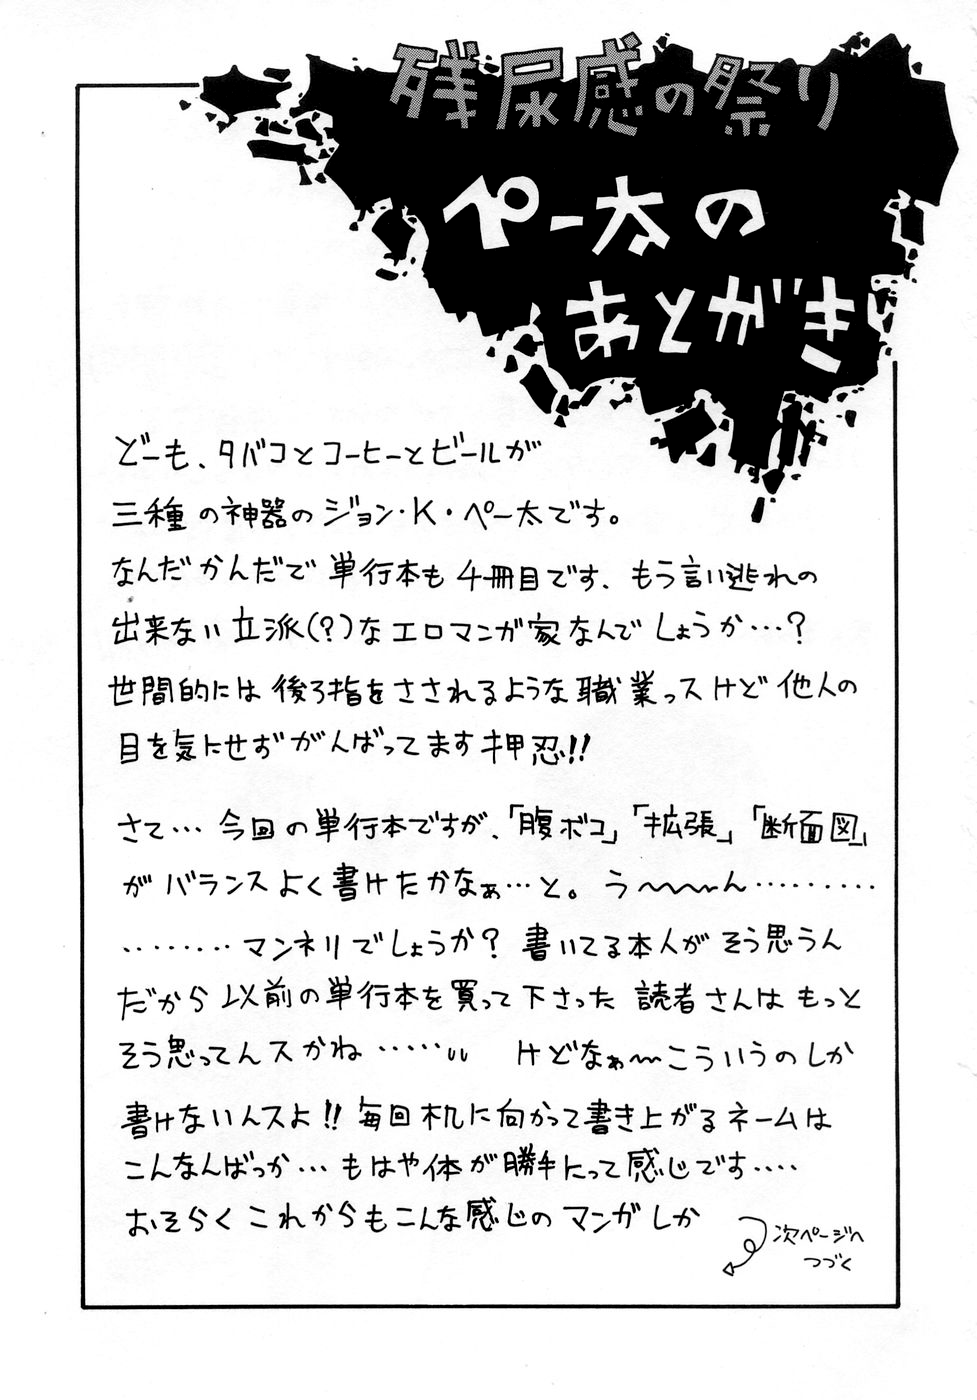 残尿感の祭り
ぺー太の
あとがき
どーも、タバコとコーヒーとビールが
三種の神器のジョン・K・ぺー太です。
なんだかんだで単行本も4冊目です、もう言い逃れの
出来ない立派(?)なエロマンガ家なんでしょうか…?
世間的には後ろ指をさされるような職業っスけど他人の
目を気にせずがんばってます押忍!!
さて…今回の単行本ですが、「腹ボコ」「拡張」「断面図」
がバランスよく書けたかなぁ…と。う〜〜〜ん………
………マンネリでしょうか?書いてる本人がそう思うん
だから以前の単行本を買って下さった読者さんはもっと
そう思ってんスかね……けどなぁ〜こういうのしか
書けないんスよ!!毎回机に向かって書き上がるネームは
こんなんばっか…もはや体が勝手にって感じです‥‥
おそらくこれからもこんな感じのマンガしか
次ページへ
つづく